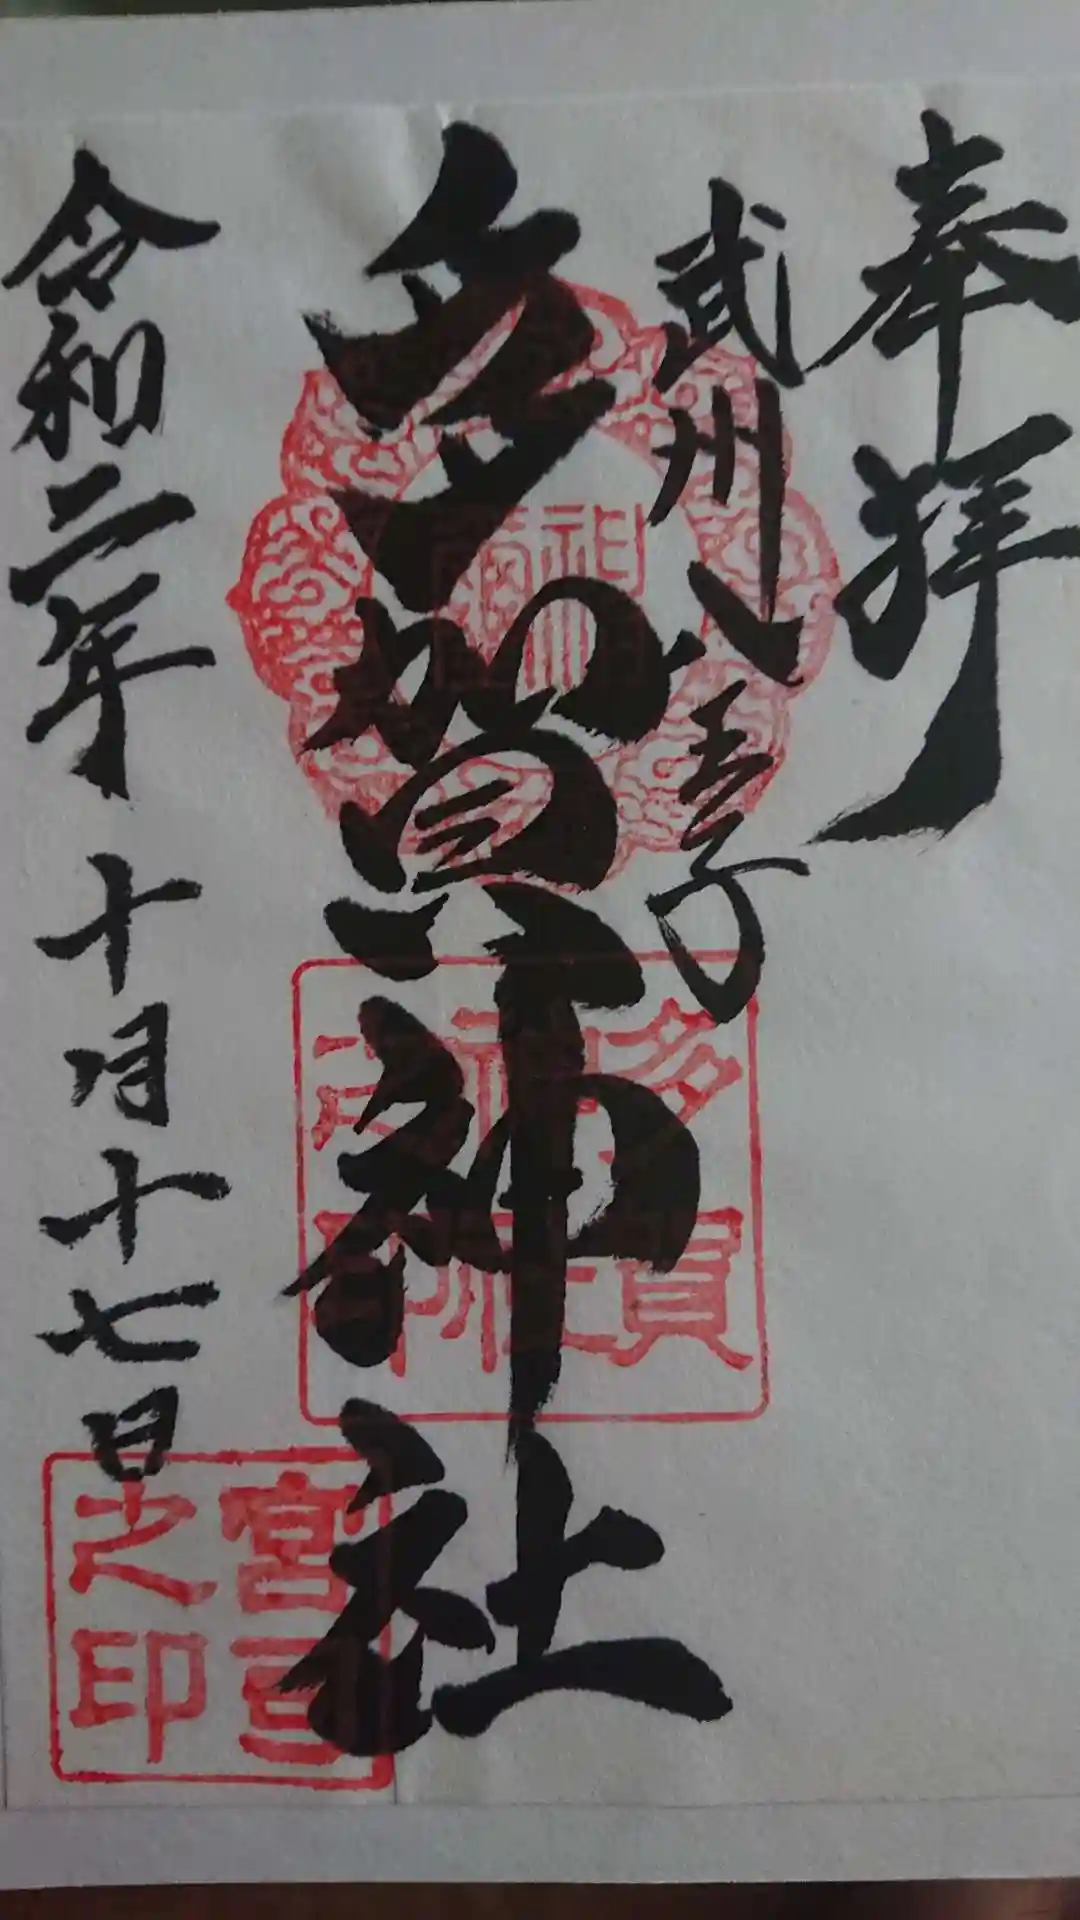 奉拝
武州八王子
多賀神社
令和二年十月十七日
多賀
神社
宮司
之印